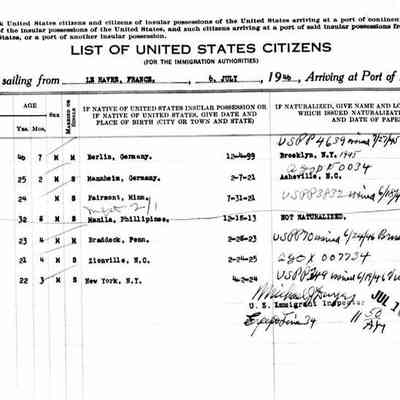 k United States citizens and citizens of insular possessions of the United States arriving at a port of continen
of the insular possessions of the United States, and such citizens arriving at a port of said insular possessions fro
States, or a port of another insular possession.
LIST OF UNITED STATES CITIZENS
(FOR THE IMMIGRATION AUTHORITIES)
sailing from LE HAVER, FRANCE. , 6 JULY , 1946 , Arriving at Port of
AGE
Yrs. Mos.
SEX
MARRIED OR SINGLE
IF NATIVE OF UNITED STATES INSULAR POSSESSION OR IF NATIVE OF UNITED STATES, GIVE DATE AND PLACE OF BIRTH (CITY OR TOWN AND STATE)
IF NATURALIZED, GIVE NAME AND LO
WHICH ISSUED NATURALIZATI
AND DATE OF PAPE
USPP 4639 issued 7/27/45
46 7 M M Berlin, Germany. 12-4-99 Brooklyn, N.Y. 1945
25 2 M Mannheim, Germany. 2-7-21 Asheville, N.C.
24 M Fairmont, Minn. 7-31-21 USPP 3832 issued
32 M Manila, Phillipines. 12-15-13 NOT NATURALIZED.
23 4 M Braddock, Penn. 2-26-23 issued 6/24/46
21 4 M M 2-24-25 AGO X 007734
22 3 M New York, N.Y. 4-2-24 issued 6/19/46
U. S. Immigrant Inspector
JUL
11 50